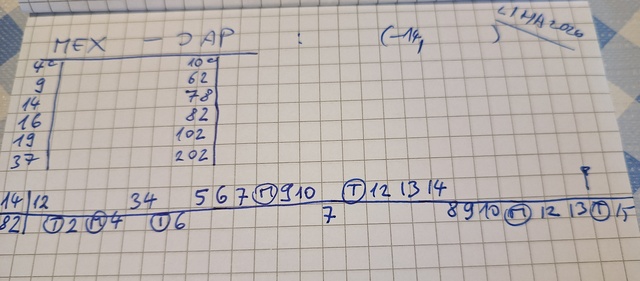 LIMA2020
MEX - JAP : (-14, )
4c 10c
9 62
14 78
16 82
19 102
37 202
14 12 34 5 6 7 M 9 10 T 12 13 14
82 T 2 M 4 T 6 7 8 9 10 M 12 13 T 15